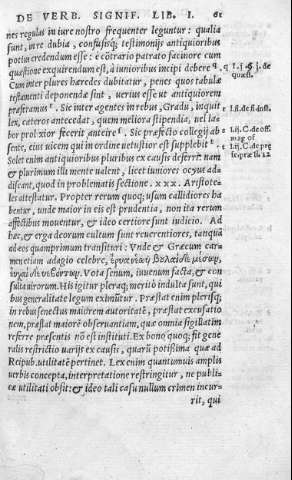 DE VERB. SIGNIF. LIB. I. 61
nes regulas in iure nostro frequenter leguntur: qualia
sunt, in re dubia, confusisq; testimonijs antiquioribus
potius credendum esse: è cōtrario patrato facinore cum
quæstione exquirendum est, à iunioribus incipi debere
Cum inter plures hæredes dubitatur, penes quos tabulæ
testamenti deponendæ sint, uerius esse ut antiquiorem
præferamus. Sic inter agentes in rebus, Gradu, inquit
lex, cæteros antecedat, quem meliora stipendia, uel la-
bor prolixior fecerit anteire. Sic præfectio collegij ab
sente, eius uicem qui in ordine uetustior est supplebit
Solet enim antiquioribus pluribus ex causis deferri: nam
& plurimum illi mente ualent, licet iuniores ocyus ad-
discant, quod in problematis sectione. xxx. Aristote-
les attestatur. Propter rerum quoq; usum callidiores ha
bentur, unde maior in eis est prudentia, non ita rerum
affectibus mouentur, & ideo certiore sunt iudicio. Ad
hæc, & ad deorum cultum sunt reuerentiores, tanquā
ad eos quamprimum transituri: Vnde & Græcum car
men etiam adagio celebre,
Vota senum, iuuenum facta, & con
sulta uirorum. His igitur pleraq; meritò indulta sunt, qui
bus generalitate legum eximūtur. Præstat enim plerisq;
in rebus senectus maiorem autoritatē, præstat excusatio
nem, præstat maiorē obseruantiam, quæ omnia sigillatim
referre præsentis nō est instituti. Ex bono quoq; fit gene
ralis restrictio uarijs ex causis, quarū potissima quæ ad
Reipub. utilitatē pertinet. Lex enim quantumuis amplis
uerbis concepta, interpretatione restringitur, ne publi-
cæ utilitati obsit: & ideo tali casu nullum crimen incur-
rit, qui